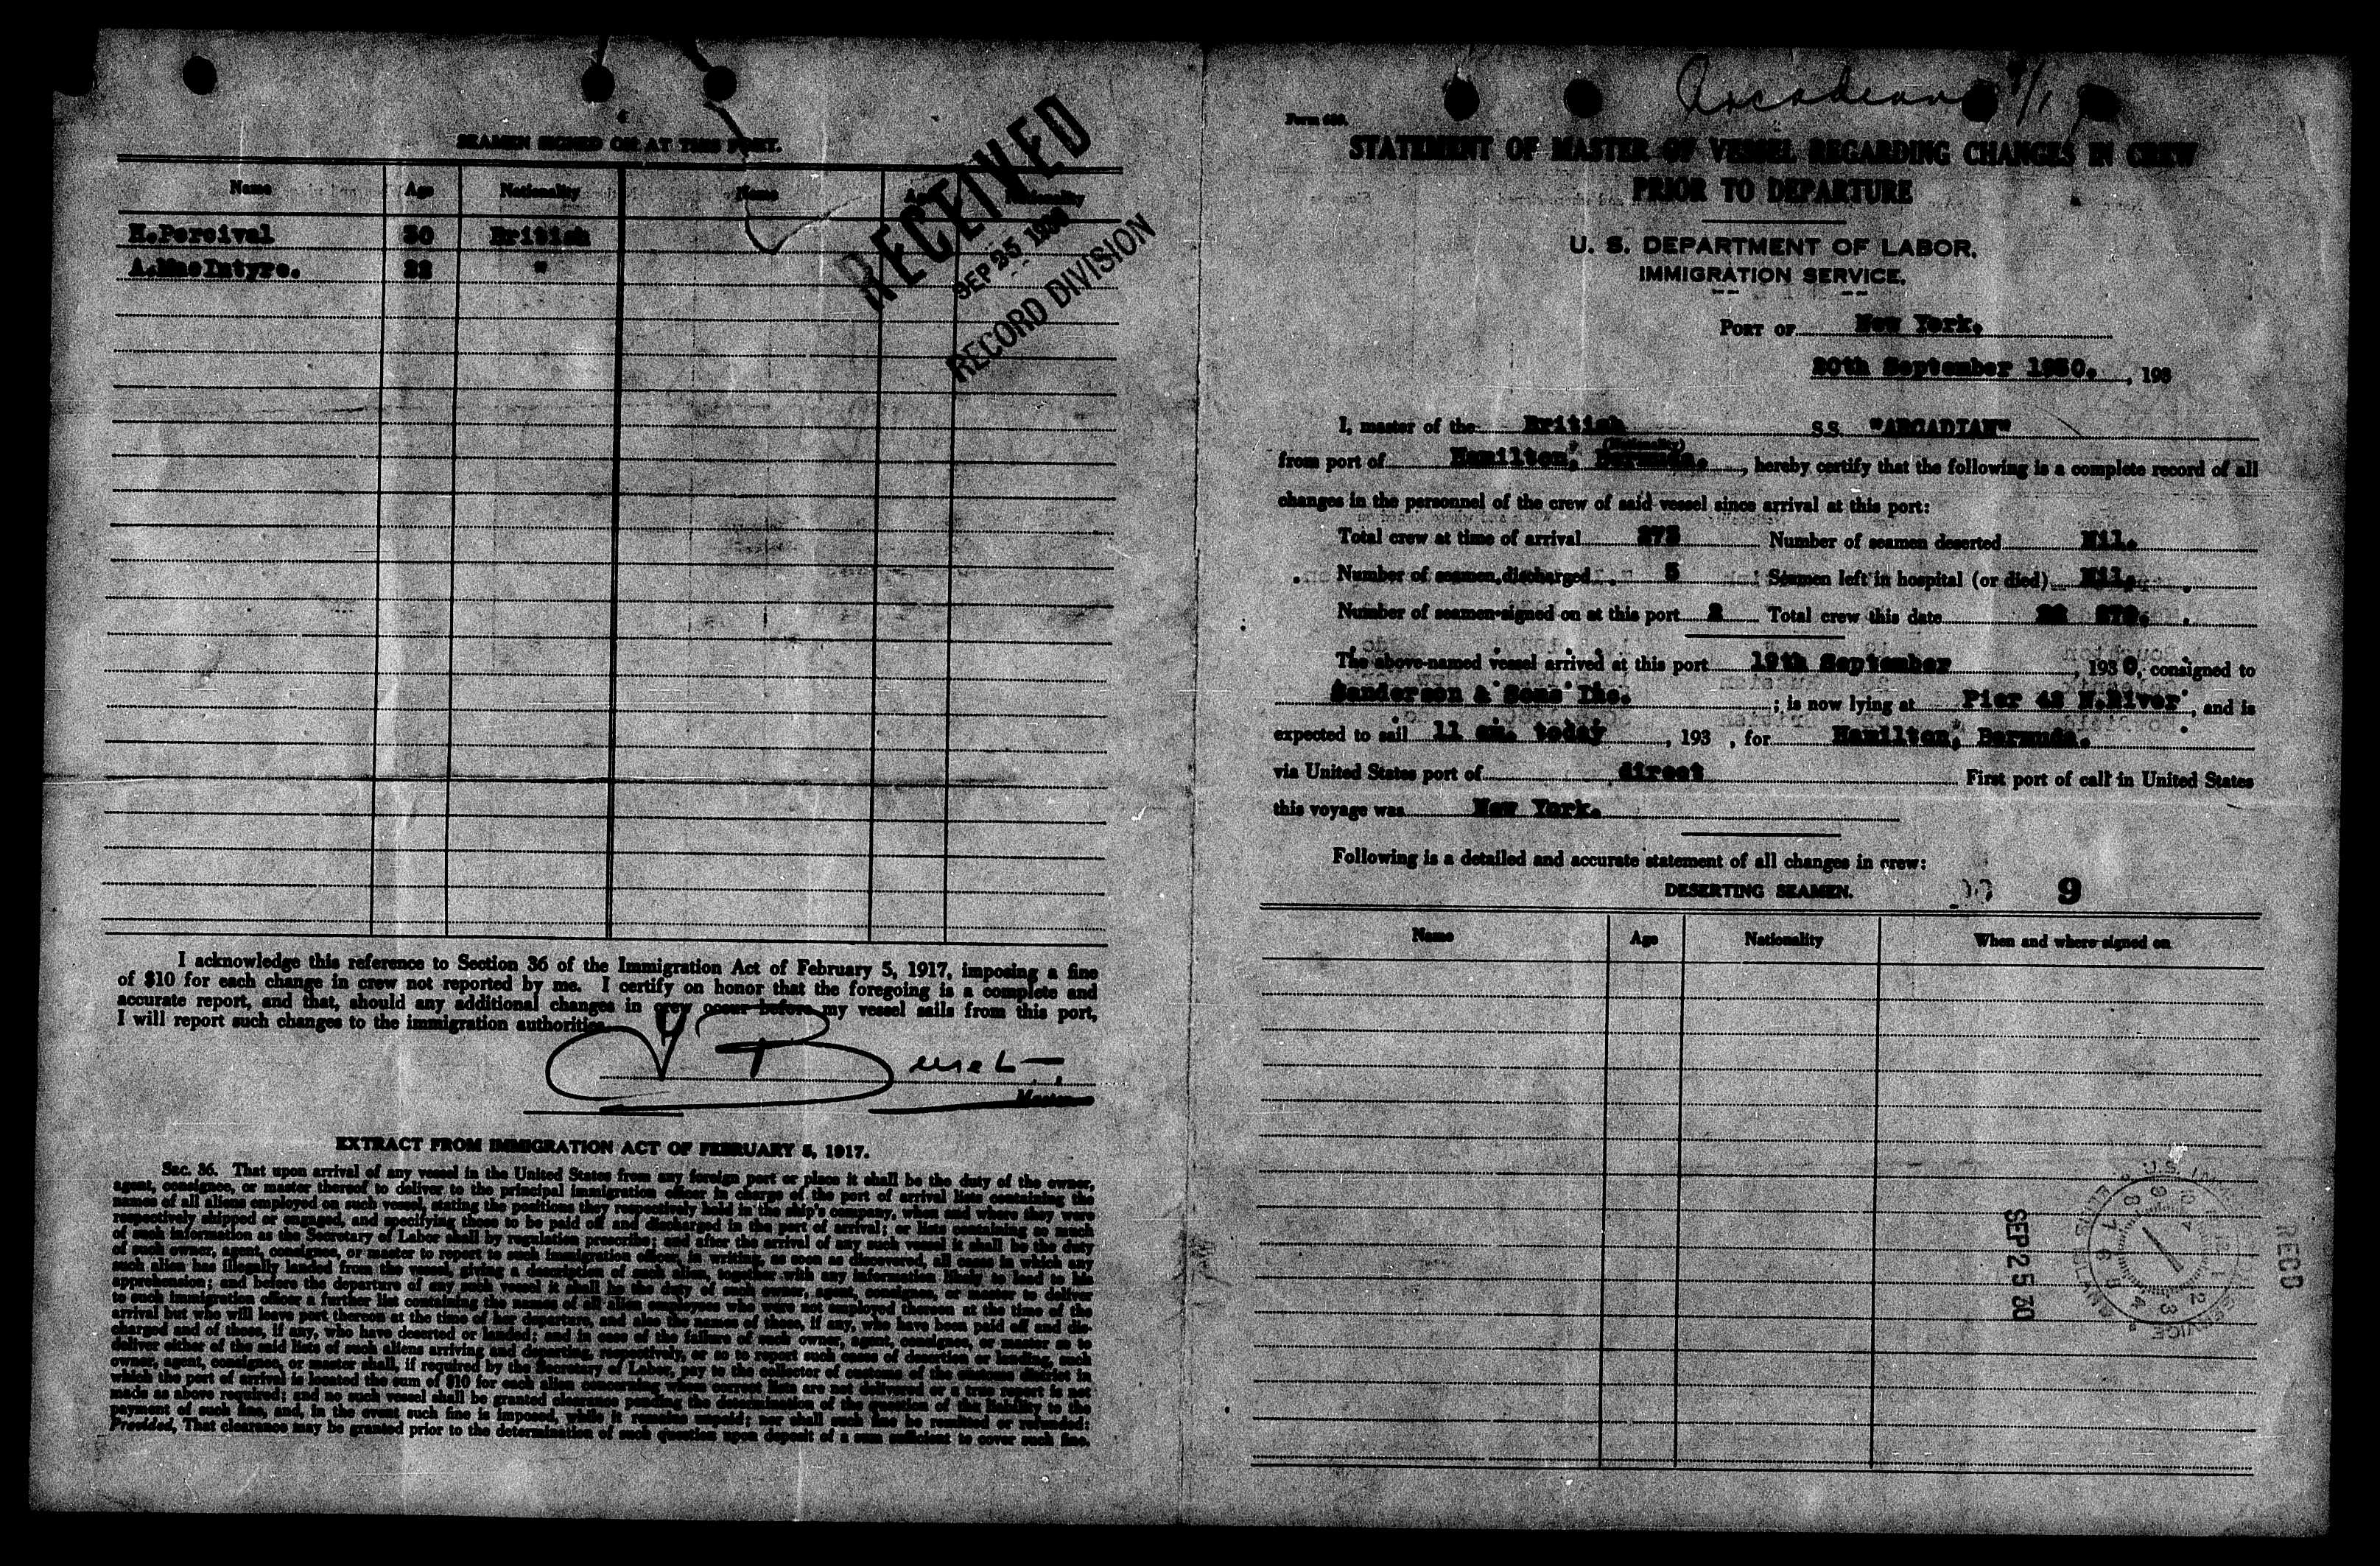 SEAMEN SIGNED ON AT THIS PORT.
Name Age Nationality Name Nationality
H.Percival 30 British
A.MacIntyre. 22 "
RECEIVED
SEP 25 1930
RECORD DIVISION
I acknowledge this reference to Section 36 of the Immigration Act of February 5, 1917, imposing a fine
of $10 for each change in crew not reported by me. I certify on honor that the foregoing is a complete and
accurate report, and that, should any additional changes in crew occur before my vessel sails from this port,
I will report such changes to the immigration authorities.
Master
EXTRACT FROM IMMIGRATION ACT OF FEBRUARY 5, 1917.
Sec. 36. That upon arrival of any vessel in the United States from any foreign port or place it shall be the duty of the owner,
agent, consignee, or master thereof to deliver to the principal immigration officer in charge of the port of arrival lists containing the
names of all aliens employed on such vessel, stating the positions they respectively hold in the ship's company, when and where they were
respectively shipped or engaged, and specifying those to be paid off and discharged in the port of arrival; or lists containing so much
of such information as the Secretary of Labor shall by regulation prescribe; and after the arrival of any such vessel it shall be the duty
of such owner, agent, consignee, or master to report to such immigration officer, in writing, as soon as discovered, all cases in which any
such alien has illegally landed from the vessel, giving a description of such alien, together with any information likely to lead to his
apprehension; and before the departure of any such vessel it shall be the duty of such owner, agent, consignee, or master to deliver
to such immigration officer a further list containing the names of all alien employees who were not employed thereon at the time of the
arrival but who will leave port thereon at the time of her departure, and also the names of those, if any, who have been paid off and dis-
charged and of those, if any, who have deserted or landed; and in case of the failure of such owner, agent, consignee, or master so to
deliver either of the said lists of such aliens arriving and departing, respectively, or so to report such cases of desertion or landing, such
owner, agent, consignee, or master shall, if required by the Secretary of Labor, pay to the collector of customs of the customs district in
which the port of arrival is located the sum of $10 for each alien concerning whom correct lists are not delivered or a true report is not
made as above required; and no such vessel shall be granted clearance pending the determination of the question of the liability to the
payment of such fine, and, in the event such fine is imposed, while it remains unpaid; nor shall such fine be remitted or refunded:
Provided, That clearance may be granted prior to the determination of such question upon deposit of a sum sufficient to cover such fine.
Arcadian
Form 689.
STATEMENT OF MASTER OF VESSEL REGARDING CHANGES IN CREW
PRIOR TO DEPARTURE
U. S. DEPARTMENT OF LABOR.
IMMIGRATION SERVICE.
PORT OF New York.
20th September 1930. , 193
I, master of the British S.S. "ARCADIAN"
(Nationality)
from port of Hamilton, Bermuda. , hereby certify that the following is a complete record of all
changes in the personnel of the crew of said vessel since arrival at this port:
Total crew at time of arrival 273 Number of seamen deserted Nil.
Number of seamen discharged 3 Seamen left in hospital (or died) Nil.
Number of seamen signed on at this port 2 Total crew this date 272.
The above-named vessel arrived at this port 19th September , 193 0, consigned to
Sanderson & Sons Inc. ; is now lying at Pier 42 N.River , and is
expected to sail 11 am. today , 193 , for Hamilton, Bermuda.
via United States port of direct First port of call in United States
this voyage was New York.
Following is a detailed and accurate statement of all changes in crew:
DESERTING SEAMEN. 9
Name Age Nationality When and where signed on
SEP 25 30
REC'D